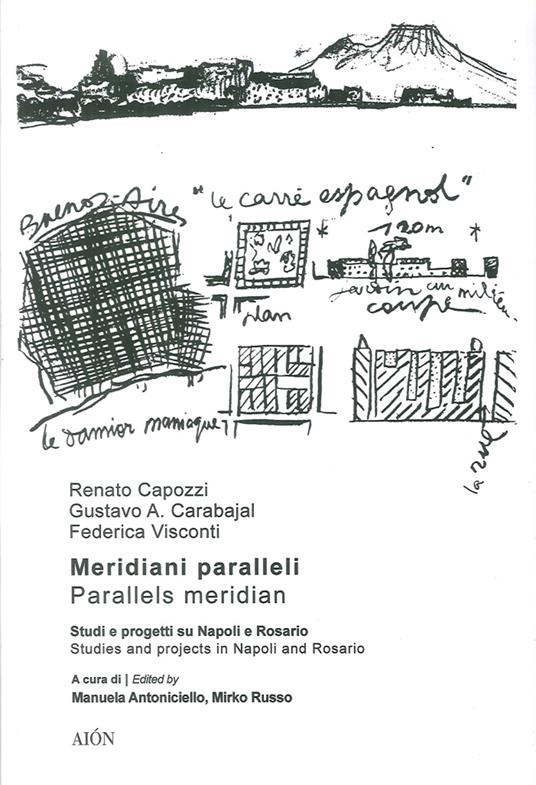 Buenos-Aires
"le carré espagnol"
120m
jardin au milieu
coupe
plan
le damier maniaque
la rue
Renato Capozzi
Gustavo A. Carabajal
Federica Visconti
Meridiani paralleli
Parallels meridian
Studi e progetti su Napoli e Rosario
Studies and projects in Napoli and Rosario
A cura di | Edited by
Manuela Antoniciello, Mirko Russo
AIÓN